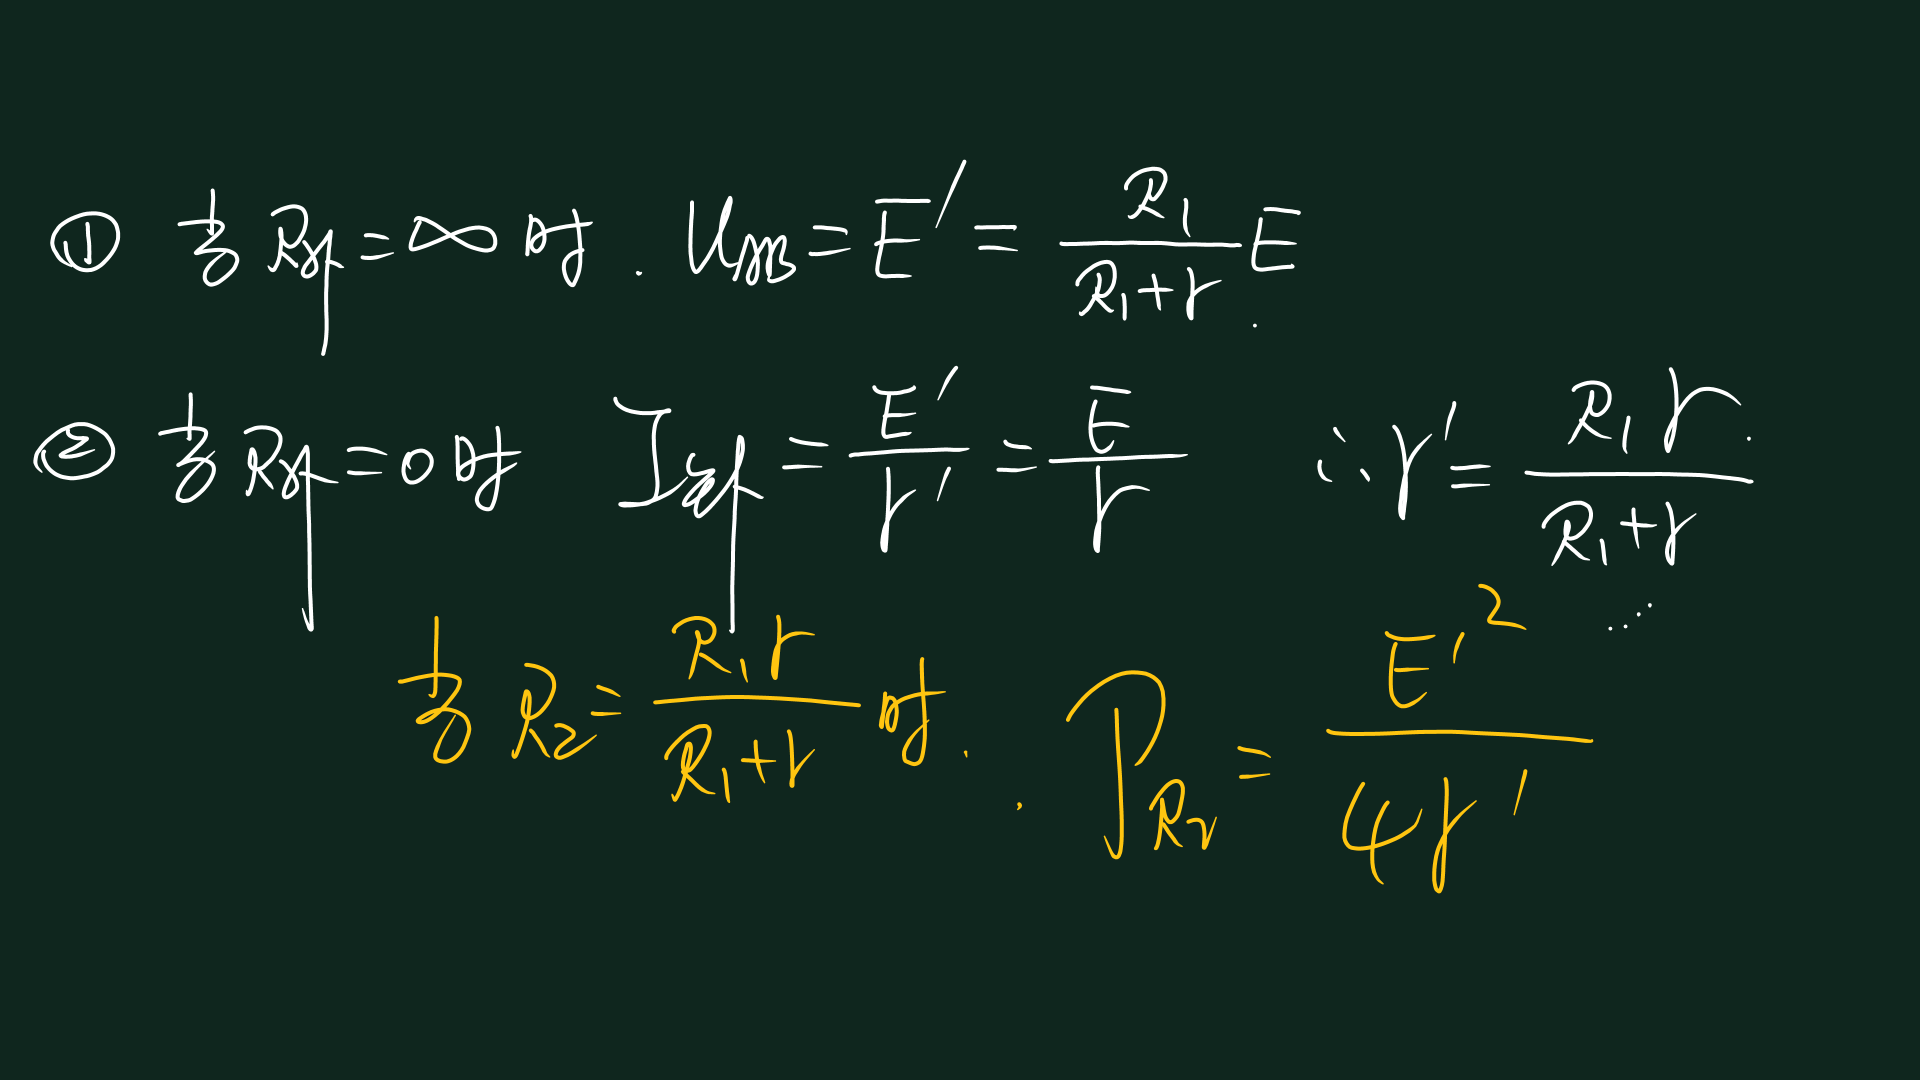 ① 当 R外 = ∞ 时. U_AB = E' = R₁/(R₁+r) E.
② 当 R外 = 0 时 I短 = E'/r' = E/r ∴ r' = R₁r/(R₁+r)
当 R₂ = R₁r/(R₁+r) 时. P_R₂ = E'²/4r'